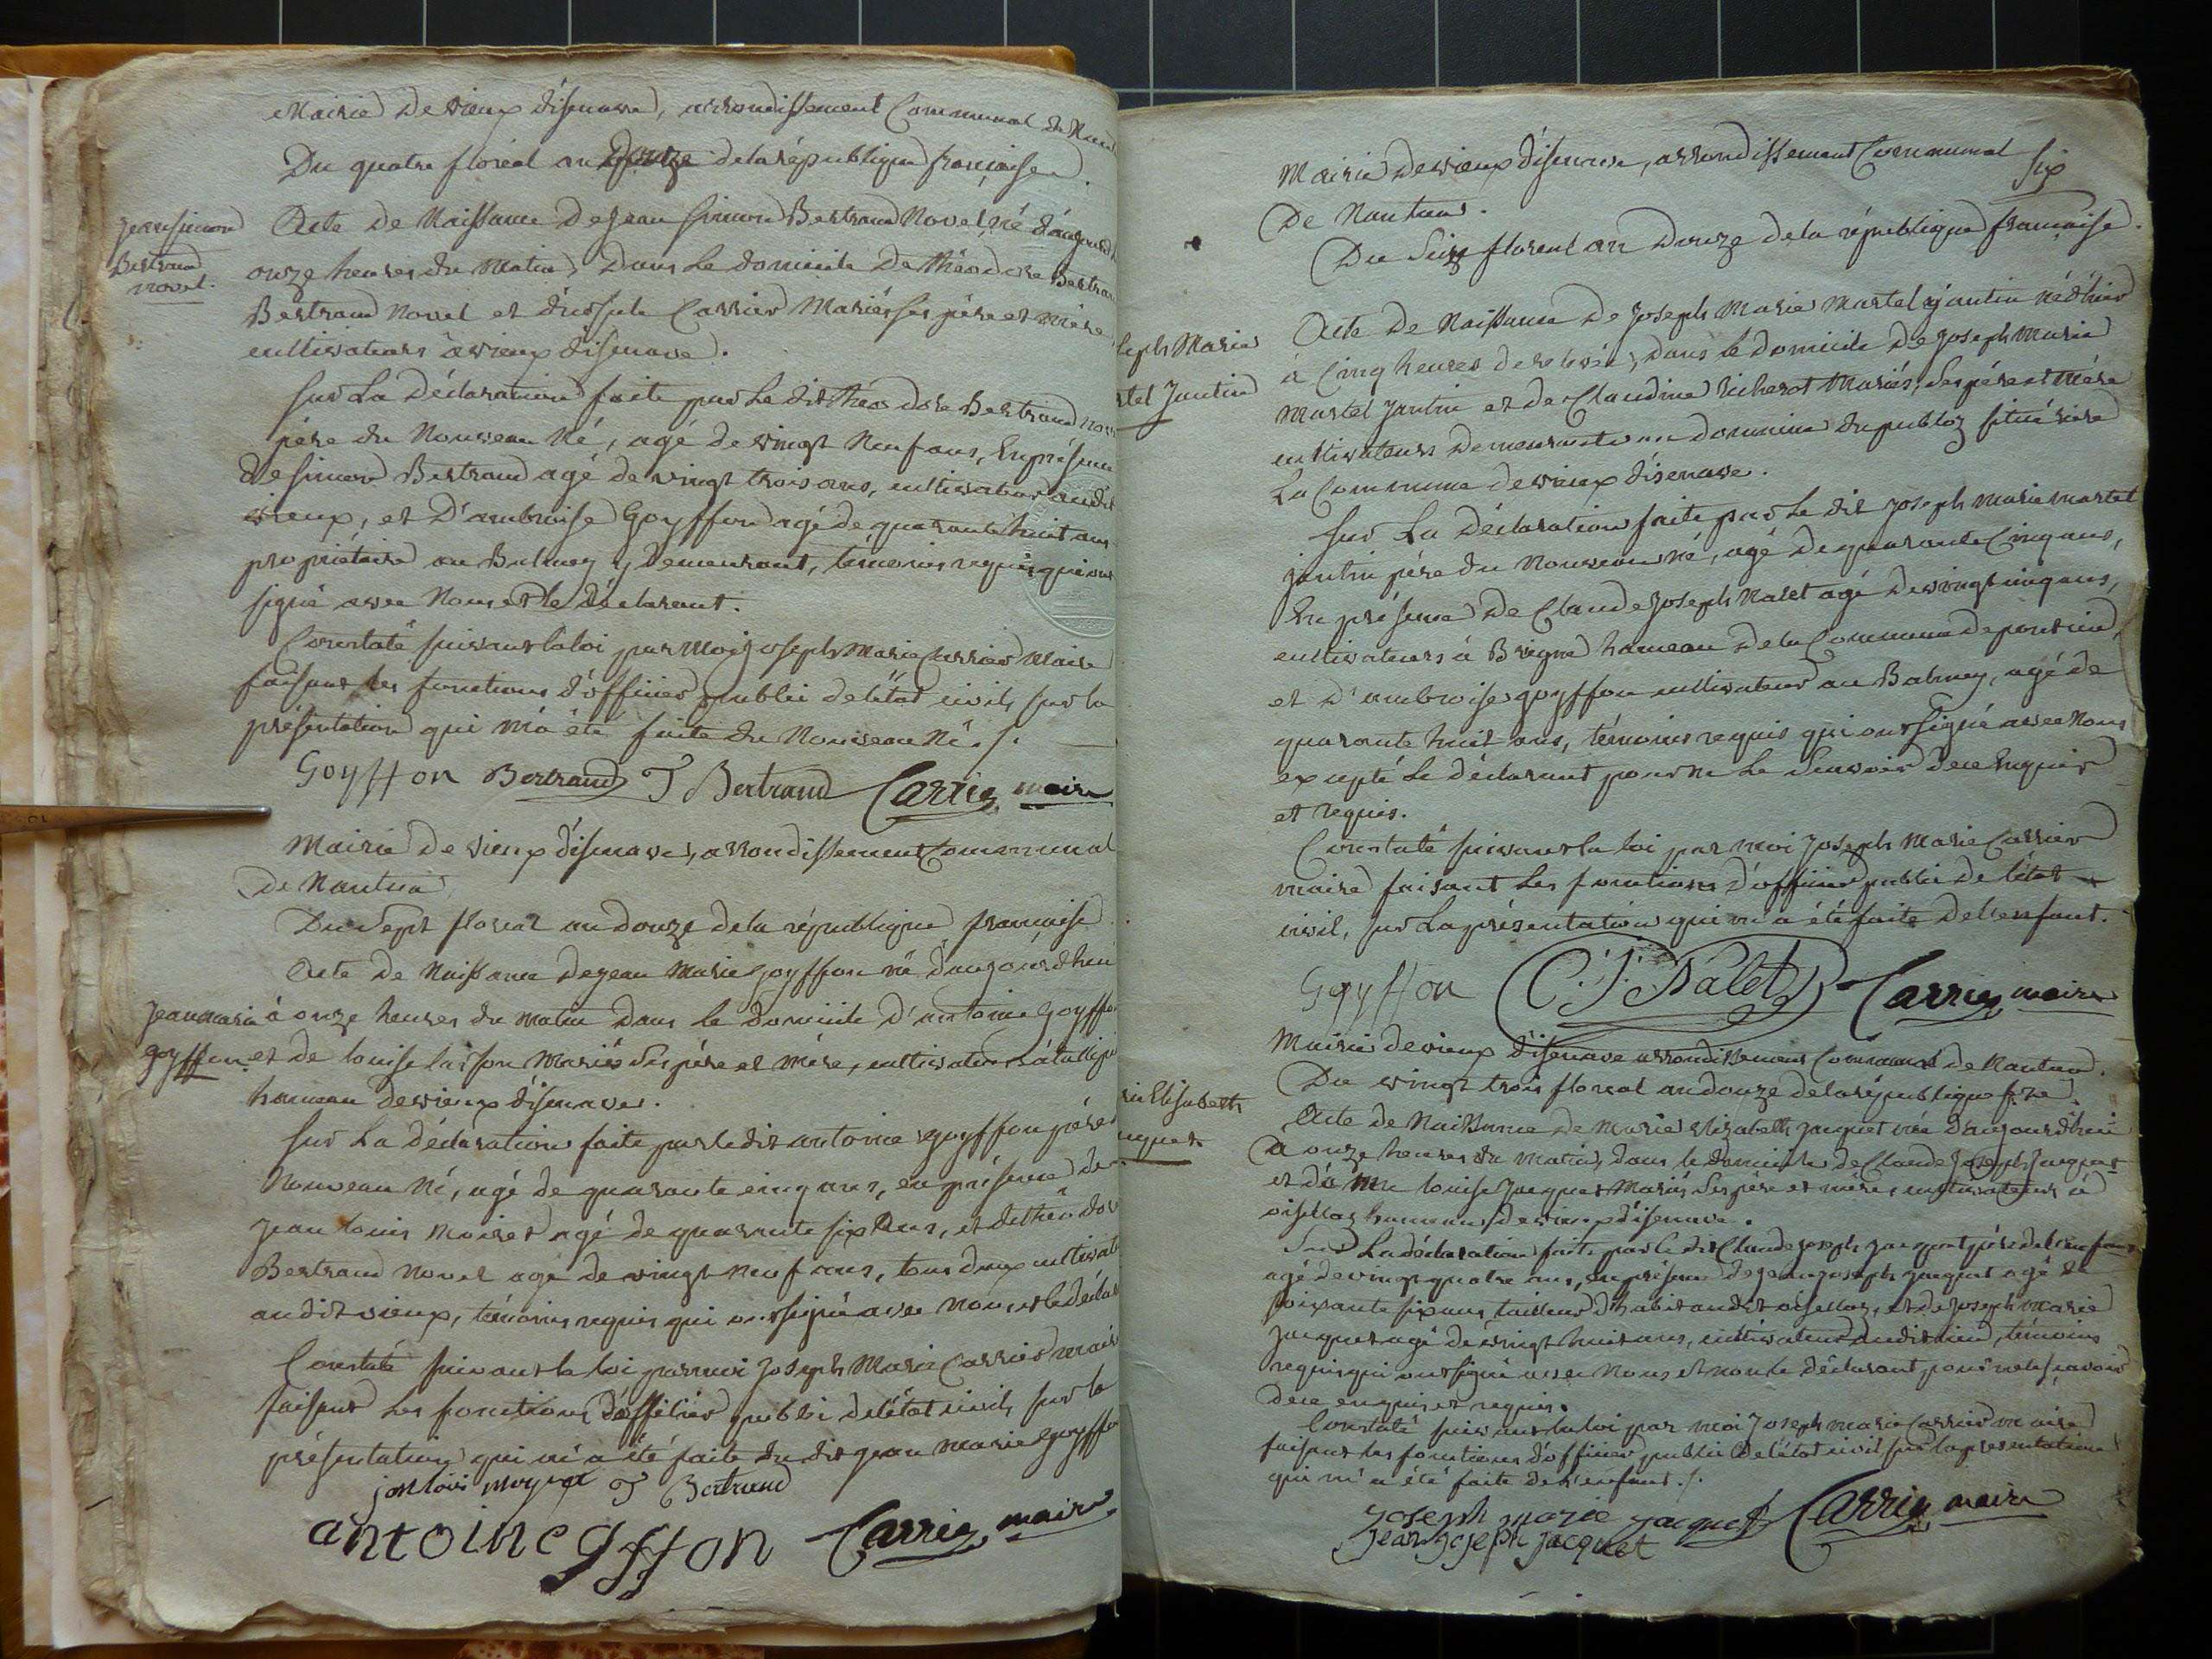 Mairie de vieux d'isenave, arrondissement Communal de Nant
Du quatre floréal an douze de la république française.
jean simon
Bertrand
novel.
Acte de Naissance de jean simon Bertrand Novel, né d'aujourd
onze heures du matin, dans le domicile de théodore Bertran
Bertrand novel et d'ursule Carrier Mariés ses père et mère,
cultivateurs à vieux d'isenave.
sur la déclaration faite par le dit théodore Bertrand nov
père du nouveau né, agé de vingt neuf ans, En présence
de simon Bertrand agé de vingt trois ans, cultivateur audit
vieux, et d'ambroise Goyffon agé de quarante huit ans
propriétaire au Balmey y demeurant, témoins requis qui ont
signé avec nous et le déclarant.
Constaté suivant la loi par moi joseph Marie Carrier Maire
faisant les fonctions d'officier public de l'état civil, sur la
présentation qui m'a été faite du nouveau né./.
Goyffon Bertrand T Bertrand Carrier maire
Mairie de vieux d'isenave, arrondissement Communal
de Nantua
Du sept floréal an douze de la république française
Acte de Naissance de jean Marie Goyffon né d'aujourd'hui
jean marie
goyffon
à onze heures du matin dans le domicile d'antoine Goyffo
et de louise Mariés ses père et mère, cultivateurs à
hameau de vieux d'isenave.
sur la déclaration faite par le dit antoine goyffon père
nouveau né, agé de quarante cinq ans, en présence de
jean louis agé de quarante six ans, et de théodor
Bertrand novel agé de vingt neuf ans, tous deux cultivat
audit vieux, témoins requis qui ont signé avec nous et le décla
Constaté suivant la loi par moi Joseph Marie Carrier maire
faisant les fonctions d'officier public de l'état civil, sur la
présentation qui m'a été faite du dit jean marie goyffo
T Bertrand
antoine gffon Carrier maire
Mairie de vieux d'isenave, arrondissement Communal
six
De Nantua.
Du seize floréal an douze de la république française.
seph Marie
rtel Jantin
Acte de Naissance de joseph Marie Martel jantin né d'hier
à cinq heures de relevée, dans le domicile de joseph Marie
Martel jantin et de Claudine Richerot Mariés, ses père et mère
cultivateurs demeurants au domaine du publoz situé rière
La Commune de vieux d'isenave.
sur la déclaration faite par le dit joseph marie martel
jantin père du nouveau né, agé de quarante cinq ans,
En présence de Claude joseph Nalet agé de vingt cinq ans,
cultivateurs à Brigne hameau de la Commune de
et d'ambroise goyffon cultivateur au Balmey, agé de
quarante huit ans, témoins requis qui ont signé avec nous
excepté le déclarant pour ne le sçavoir de ce Enquis
et requis.
Constaté suivant la loi par moi joseph Marie Carrier
maire faisant les fonctions d'officier public de l'état
civil, sur la présentation qui m'a été faite de l'enfant.
Goyffon C. J. Nalet Carrier maire
Mairie de vieux d'isenave arrondissement Communal de Nantua.
Du vingt trois floréal an douze de la république fse.
rie Elisabeth
cquet
Acte de Naissance de Marie Elizabeth jacquet née d'aujourd'hui
à onze heures du matin, dans le domicile de Claude joseph jacquet
et d'anne louise jacquet Mariés, ses père et mère, cultivateurs à
oisellaz hameau de vieux d'isenave.
sur la déclaration faite par le dit Claude joseph jacquet père de l'enfant
agé de vingt quatre ans, en présence de jean joseph jacquet agé de
soixante six ans tailleur d'habit audit oisellaz, et de joseph marie
jacquet agé de vingt huit ans, cultivateur audit lieu, témoins
requis qui ont signé avec nous et non le déclarant pour ne le sçavoir
de ce enquis et requis.
Constaté suivant la loi par moi joseph marie Carrier maire
faisant les fonctions d'officier public de l'état civil sur la presentation
qui m'a été faite de l'enfant./.
joseph marie jacquet Carrier maire
jean joseph jacquet